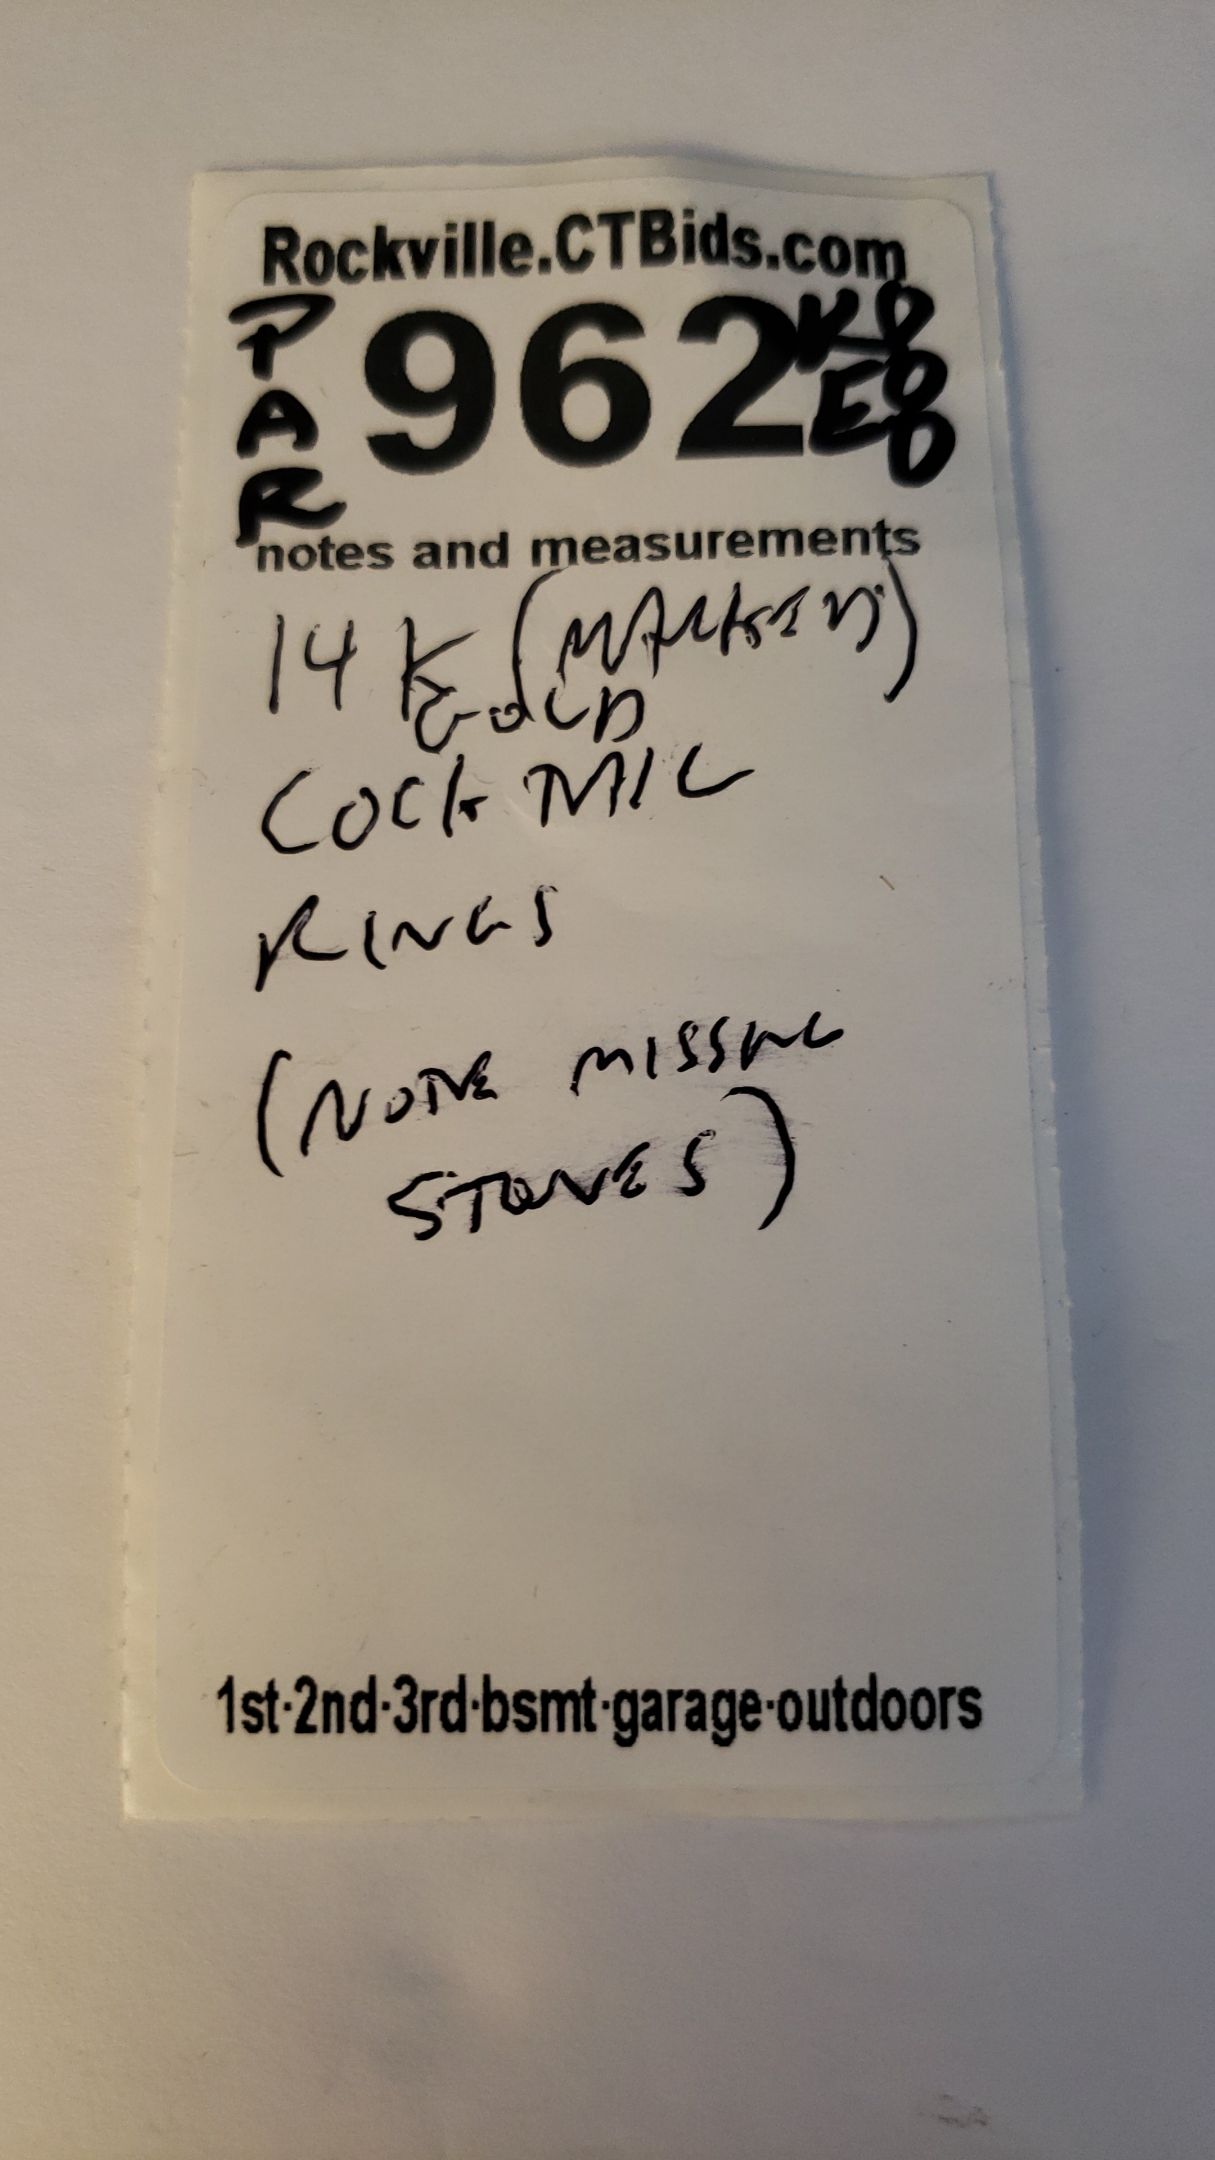 Rockville.CTBids.com
PAR 962
notes and measurements
14K (MARKED)
GOLD
COCKTAIL
RINGS
(NOTE MISSING
STONES)
1st·2nd·3rd·bsmt·garage·outdoors